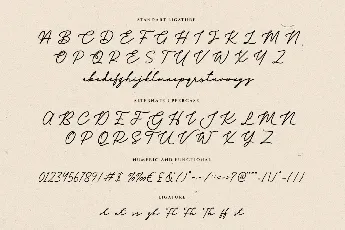 STANDART LIGATURE
A B C D E F G H I J K L M N
O P Q R S T U V W X Y Z
abcdefghijklmnopqrstuvwxyz
ALTERNATE UPPERCASE
A B C D E F G H I J K L M N
O P Q R S T U V W X Y Z
NUMERIC AND FUNCTIONAL
0123456789!#$
LIGATURE